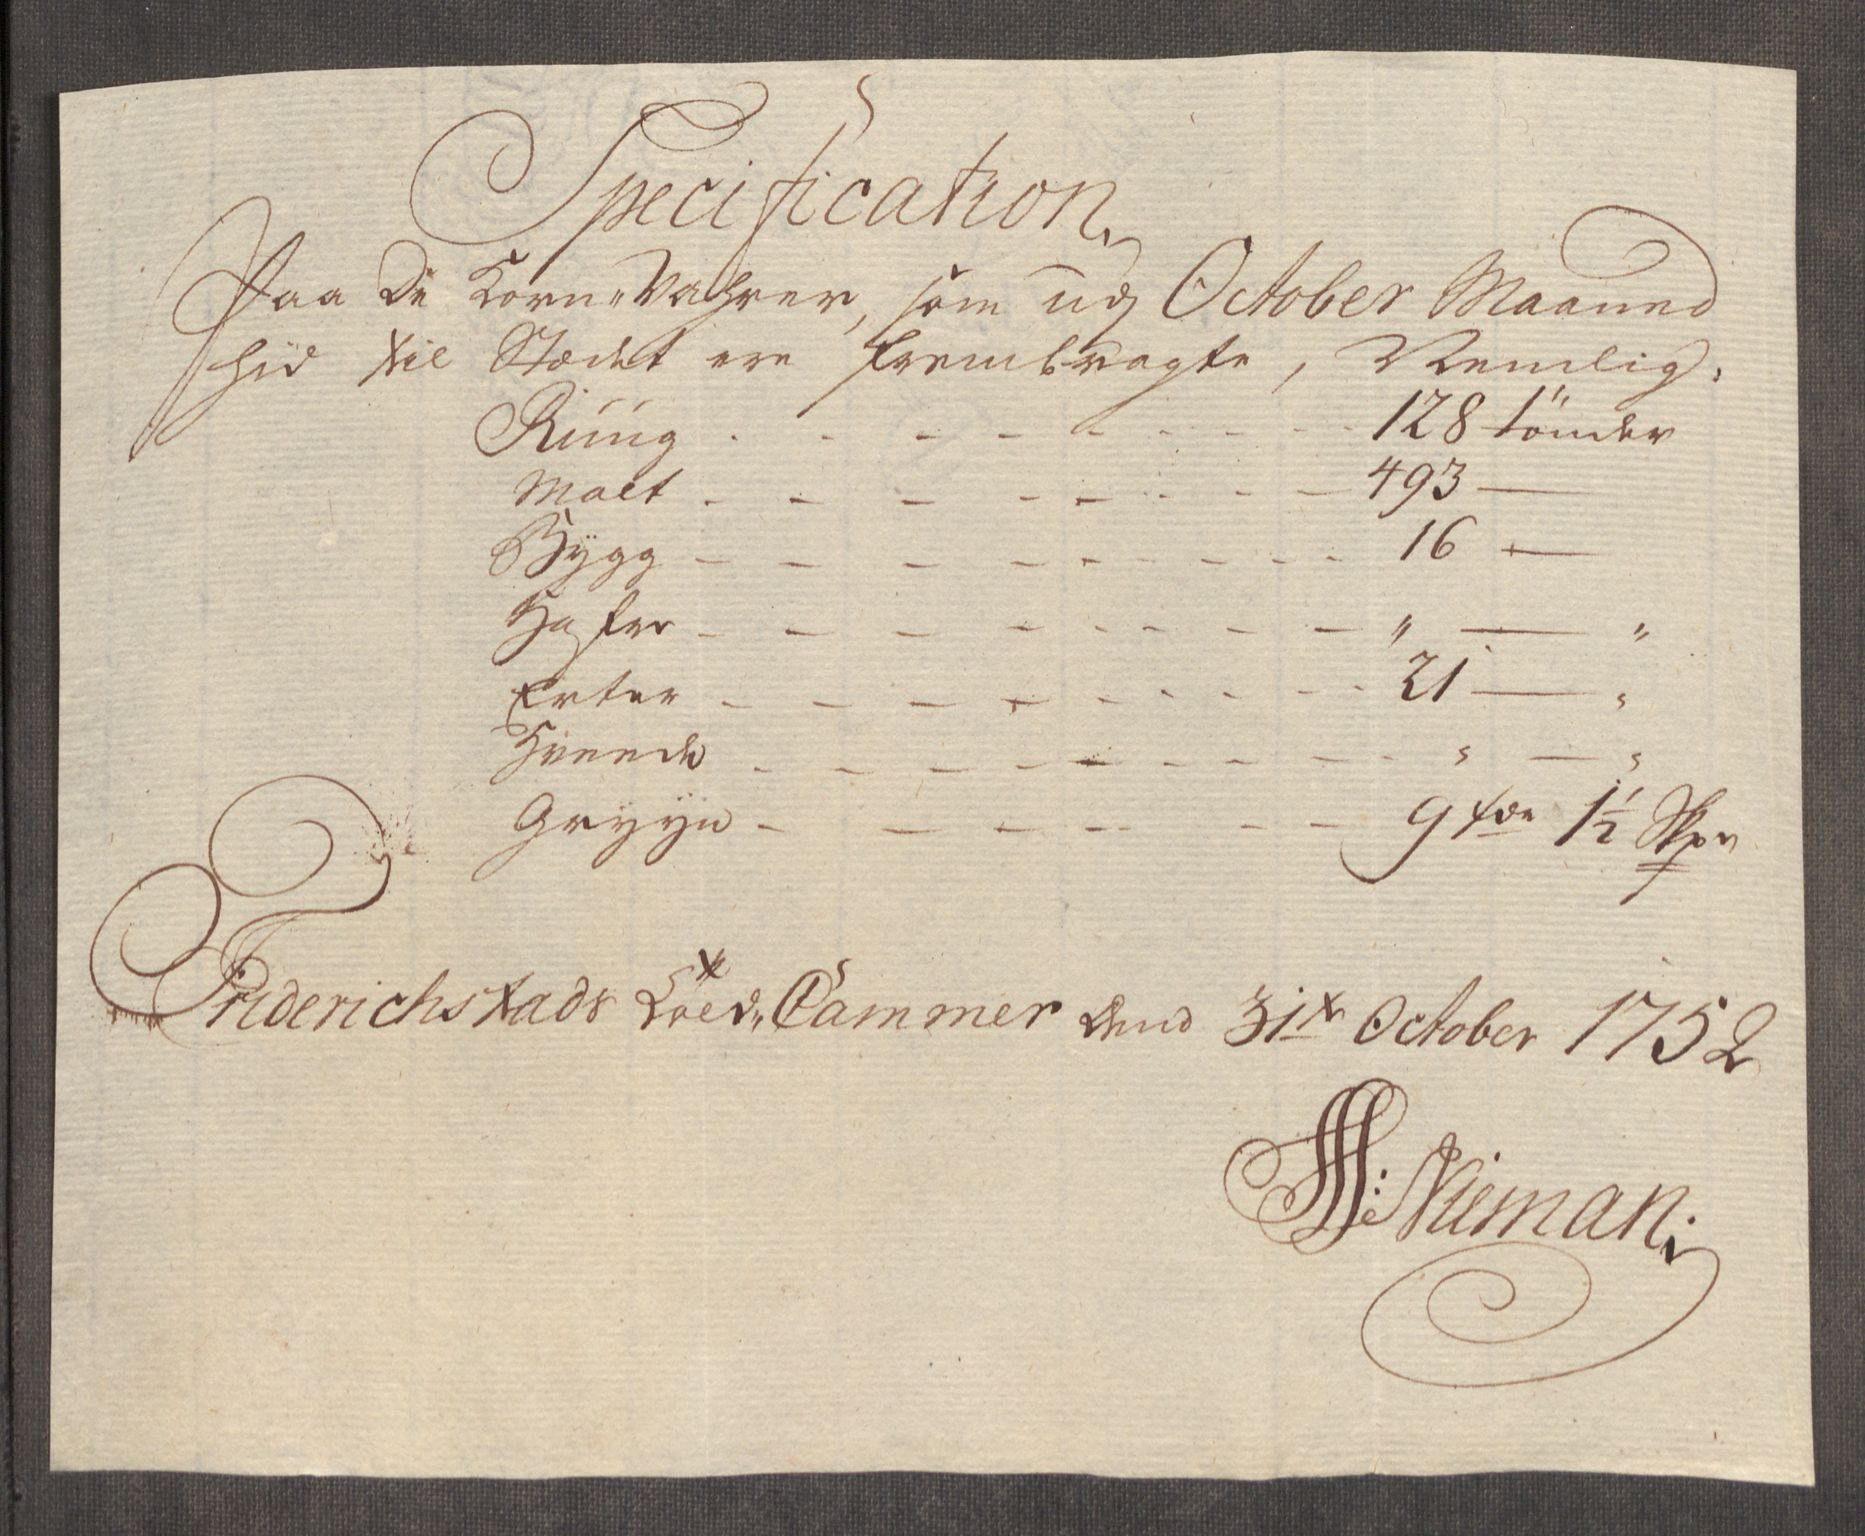 Specification,
Paa De Korn-Vahrer, som udj October Maaned
hid til Stædet ere frembragte, Nemlig.
Rüüg - - - - - - - - 128 tönder
Malt - - - - - - - - 493 —
Bÿgg - - - - - - - - 16 —
Hafre - - - - - - - - " — "
Erter - - - - - - - - 21 — "
Hveede - - - - - - - - " — "
Grÿÿn - - - - - - 9 tdr 1½ Skpr
Friderichstads Toed, Cammer dend 31te October 1752
Nieman.